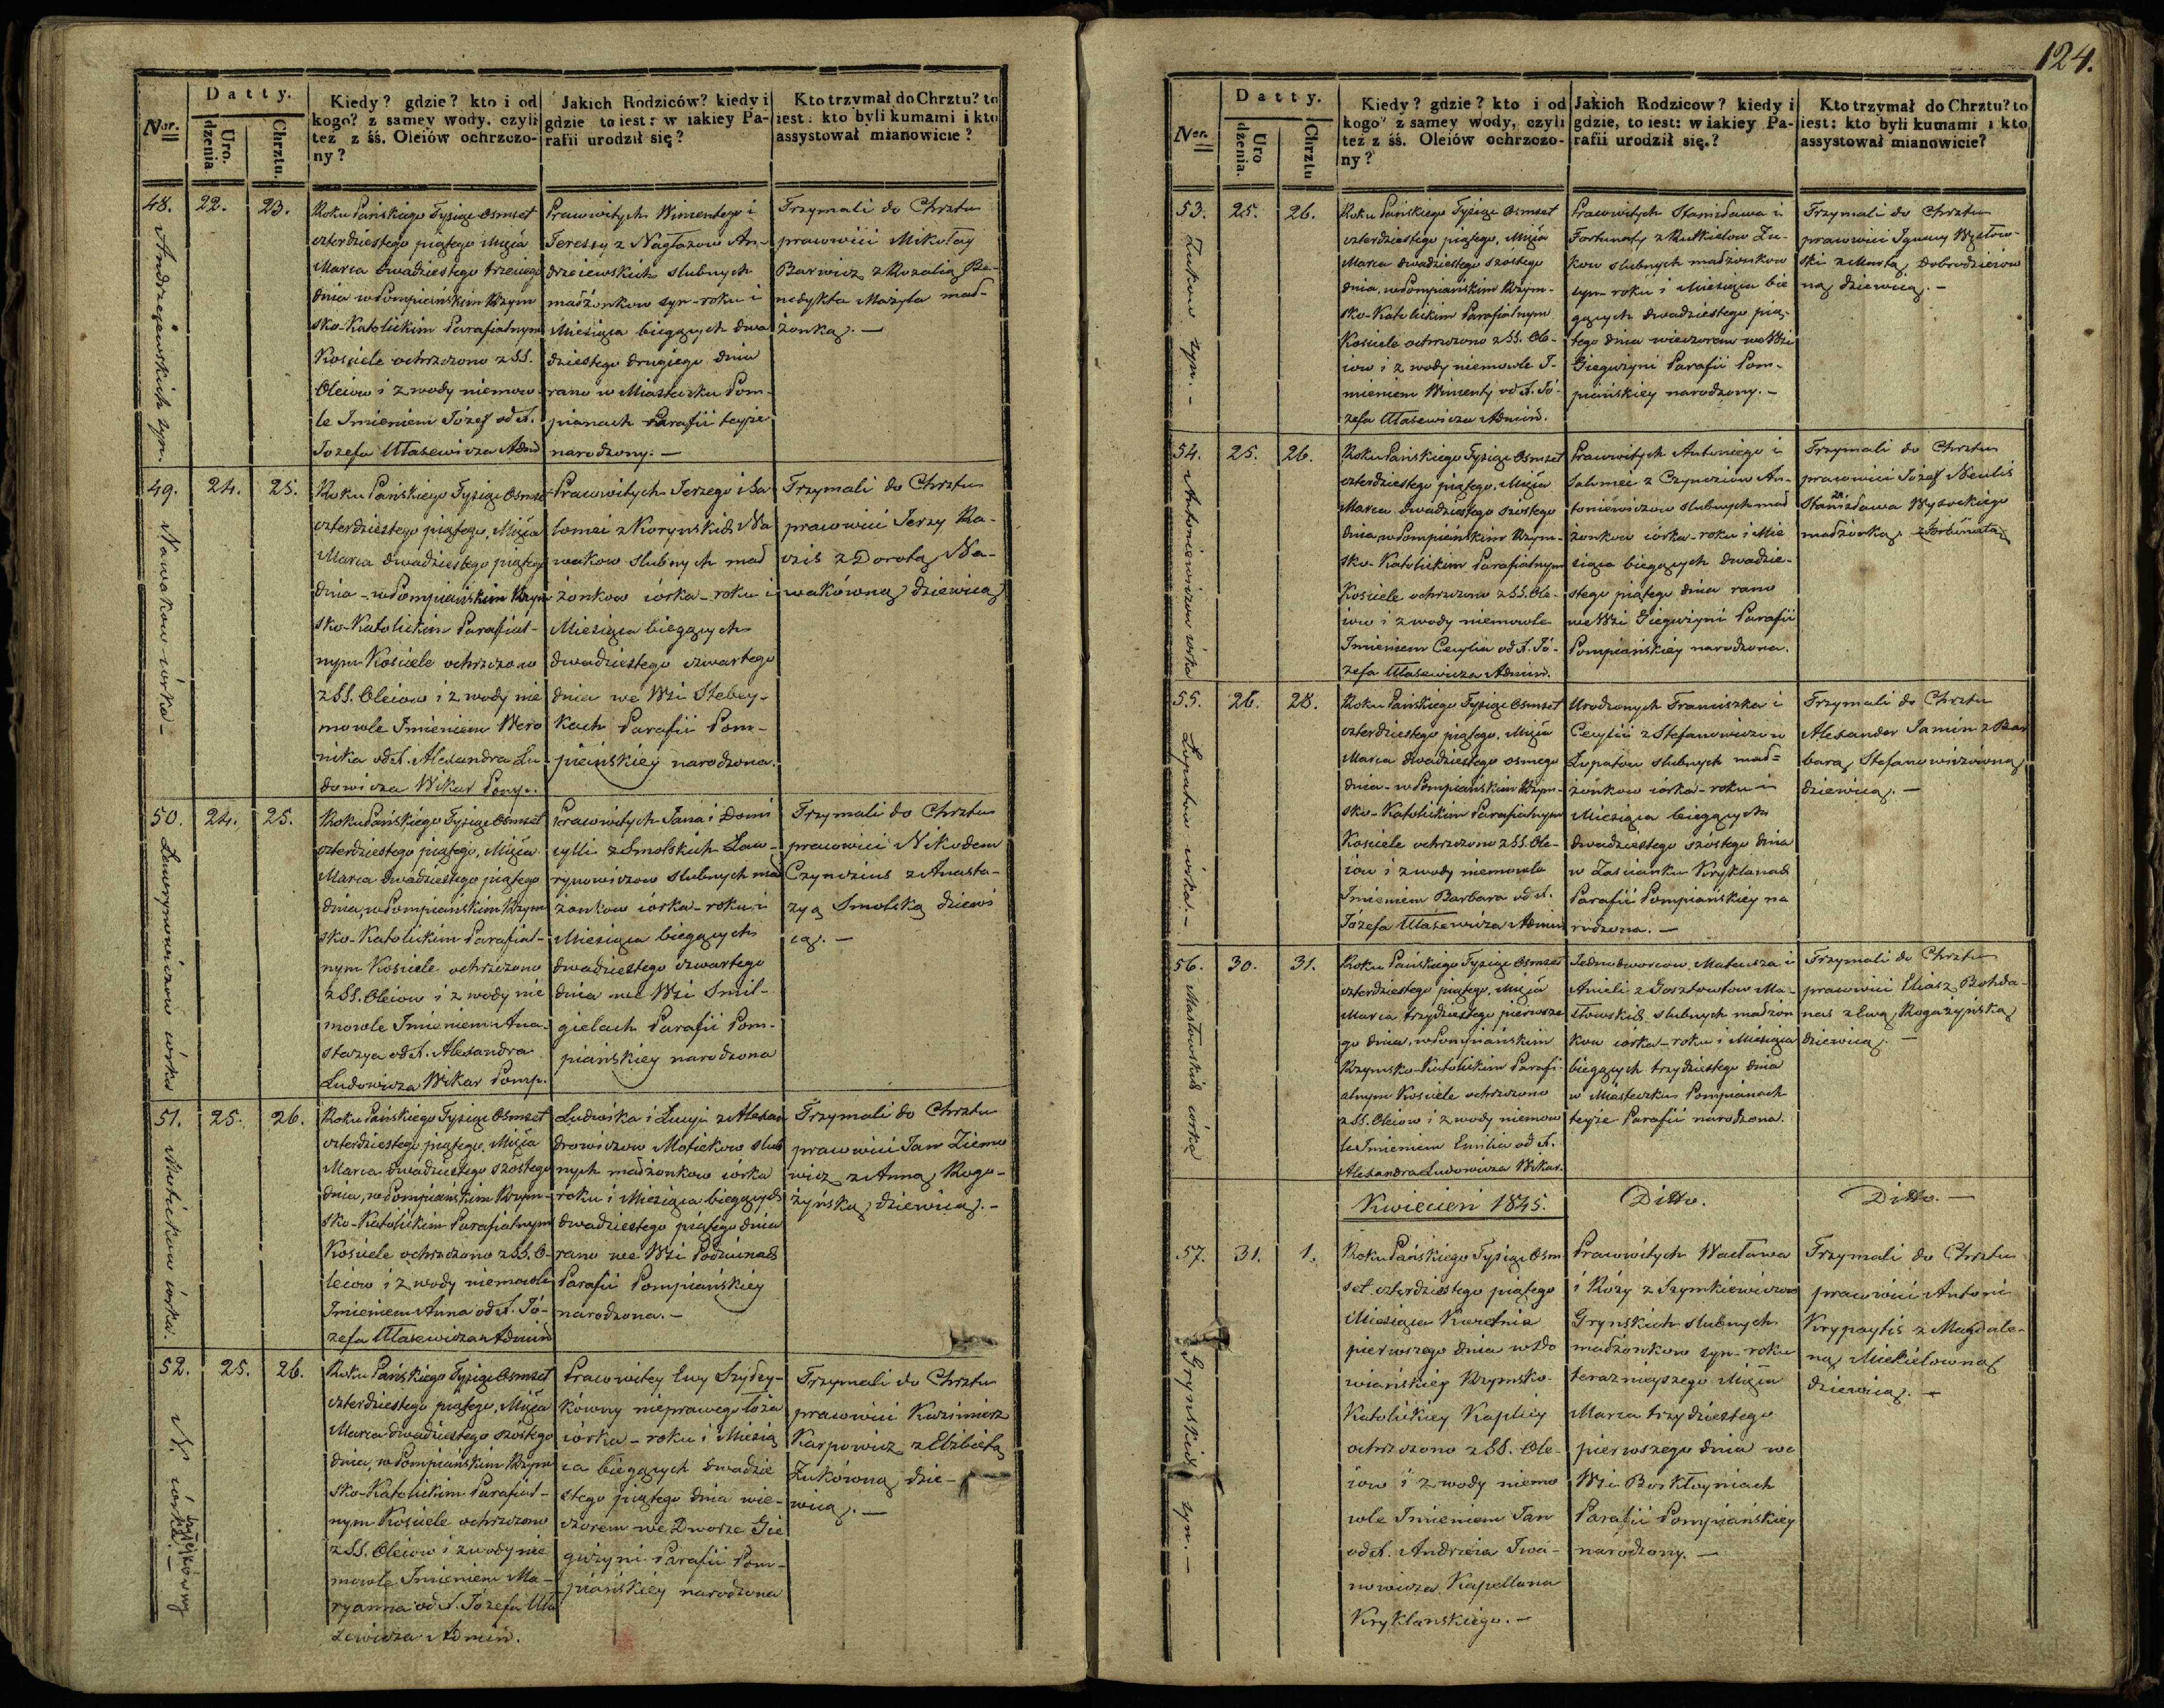 Nor.
Datty.
Uro.
dzenia
Chrztu.
Kiedy? gdzie? kto i od
kogo? z samey wody, czyli
też z śś. Oleiów ochrzczo-
ny?
Jakich Rodziców? kiedy i
gdzie to iest: w iakiey Pa-
rafii urodził się?
Kto trzymał do Chrztu? to
iest: kto byli kumami i kto
assystował mianowicie?
48.
Andrzejewskich syn.
22.
23.
Roku Pańskiego Tysiąc Osmset
czterdziestego piątego Mięśia
Marca dwadziestego trzeciego
dnia w Pompiańskim Rzym
sko-Katolickim Parafialnym
Kościele ochrzczono z SS.
Oleiow i z wody niemow-
le Imieniem Józef od X.
Jozefa Ułasewicza Admi
Pracowitych Wincentego i
Teressy z Nagłazow An-
drzeiewskich slubnych
małżonkow syn - roku i
Miesiąca bieżących dwa
dziestego drugiego dnia
rano w Miasteczku Pom-
pianach Parafii teyże
narodzony. —
Trzymali do Chrztu
pracowici Mikołay
Barwicz z Rozalią Be-
nedykta Mażyla mał-
żonką. —
49.
Nawakow córka -
24.
25.
Roku Pańskiego Tysiąc Osmse
czterdziestego piątego, Mięśia
Marca dwadziestego piątego
dnia - w Pompiańskim Rzym
sko-Katolickim Parafial-
nym Kosciele ochrzczono
z SS. Oleiow i z wody nie
mowle Imieniem Wero
nika od X. Alexandra Lu
dowicza Wikar Pomp.
Pracowitych Jerzego i Sa
lomei z Korynskich Na
wakow slubnych mał
żonkow córka - roku i
Miesiąca bieżących
dwadziestego czwartego
dnia we Wsi Stebey-
kach Parafii Pom-
piańskiey narodzona.
Trzymali do Chrztu
pracowici Jerzy Ra-
dzis z Dorotą Na-
wakówną dziewicą
50.
Lawrynowiczow córka
24.
25.
Roku Pańskiego Tysiąc Osmset
czterdziestego piątego, Mięśia
Marca dwadziestego piątego
dnia, w Pompiańskim Rzym
sko-Katolickim Parafial-
nym Kościele ochrzczono
z SS. Oleiow i z wody nie
mowle Imieniem Ana-
stazya od X. Alexandra
Ludowicza Wikar Pomp.
Pracowitych Jana i Domi
cylli z Smolskich Law-
rynowiczow slubnych mał
żonkow córka - roku i
Miesiąca bieżących
dwadziestego czwartego
dnia we Wsi Smil-
gielach Parafii Pom-
piańskiey narodzona
Trzymali do Chrztu
pracowici Nikodem
Czyndzius z Anasta-
zyą Smolską dziewi
cą. —
51.
Matickow córka.
25.
26.
Roku Pańskiego Tysiąc Osmset
czterdziestego piątego, Mięśia
Marca dwadziestego szóstego
dnia, w Pompiańskim Rzym-
sko-Katolickim Parafialnym
Kościele ochrzczono z SS. O-
leiow i z wody niemowle
Imieniem Anna od X. Jó-
zefa Ułasewicza Admin
Ludwika i Łucyi z Alexan
drowiczow Matickow slub
nych małżonkow córka
roku i Miesiąca bieżących
dwadziestego piątego dnia
rano we Wsi Podzunach
Parafii Pompiańskiey
narodzona. -
Trzymali do Chrztu
pracowici Jan Ziemo
wicz z Anną Rogo-
żyńską, dziewicą. -
52.
N. córka. —
Szyleykówny
25.
26.
Roku Pańskiego Tysiąc Osmset
czterdziestego piątego, Mięśia
Marca dwadziestego szóstego
dnia, w Pompiańskim Rzym
sko-Katolickim Parafial-
nym Kościele ochrzczono
z SS. Oleiow i z wody nie
mowle Imieniem Ma-
ryanna od X. Józefa Uła
sewicza Admin.
Pracowitey Ewy Szydey-
kówny nieprawego łoża
córka - roku i Miesią
ca bieżących dwadzie
stego piątego dnia wie-
czorem we Dworze Gie
gużyni Parafii Pom-
piańskiey narodzona
Trzymali do Chrztu
pracowici Kazimierz
Karpowicz z Elżbietą
Żukówną dzie-
wicą. —
124.
Nor.
Datty.
Uro
dzenia.
Chrztu
Kiedy? gdzie? kto i od
kogo? z samey wody, czyli
też z śś. Oleiów ochrzczo-
ny?
Jakich Rodzicow? kiedy i
gdzie, to iest: w iakiey Pa-
rafii urodził się.?
Kto trzymał do Chrztu? to
iest: kto byli kumami i kto
assystował mianowicie?
53.
Żukow syn. -
25.
26.
Roku Pańskiego Tysiąc Osmset
czterdziestego piątego, Mięśia
Marca dwadziestego szostego
dnia, w Pompiańskim Rzym-
sko-Katolickim Parafialnym
Kościele ochrzczono z SS. Ole-
iow i z wody niemowle I-
mieniem Wincenty od X. Jó-
zefa Ułasewicza Admin.
Pracowitych Stanisława i
Fortunaty z Rutkielow Żu-
kow slubnych małżonkow
syn - roku i Miesiąca bie
żących dwadziestego pią-
tego dnia wieczorem we Wsi
Gieguzyni Parafii Pom-
piańskiey narodzony. -
Trzymali do Chrztu
pracowici Ignacy Wysłow-
ski z Martą Dobrodziejow
ną dziewicą. -
54.
Antoniewiczow córka
25.
26.
Roku Pańskiego Tysiąc Osmset
czterdziestego piątego, Mięśia
Marca dwadziestego szóstego
dnia, w Pompiańskim Rzym-
sko-Katolickim Parafialnym
Kościele ochrzczono z SS. Ole-
iow i z wody niemowle
Imieniem Cecylia od X. Jó-
zefa Ułasewicza Admin.
Pracowitych Antoniego i
Salomei z Czyndziow An-
toniewiczow slubnych mał
żonkow córka - roku i Mie
siąca bieżących dwadzie-
stego piątego dnia rano
we Wsi Gieguzyni Parafii
Pompiańskiey narodzona.
Trzymali do Chrztu
pracowici Józef Neulis
za
Stanisława Wysockiego
małżonką.
55.
Łopatow córka. -
26.
28.
Roku Pańskiego Tysiąc Osmset
czterdziestego piątego, Mięśia
Marca dwadziestego osmego
dnia - w Pompiańskim Rzym-
sko-Katolickim Parafialnym
Kościele ochrzczono z SS. Ole-
iow i z wody niemowle
Imieniem Barbara od X.
Józefa Ułasewicza Admin
Urodzonych Franciszka i
Cecylii z Stefanowiczow
Łopatow slubnych mał=
żonkow córka - roku i
Miesiąca bieżących
dwadziestego szóstego dnia
w Zaścianku Kryklanach
Parafii Pompiańskiey na
rodzona. —
Trzymali do Chrztu
Alexander Jamin z Bar
barą Stefanowiczówną
dziewicą. —
56.
Masłowskich córka
30.
31.
Roku Pańskiego Tysiąc Osmset
czterdziestego piątego, Mięśia
Marca trzydziestego pierwsze
go dnia, w Pompiańskim
Rzymsko-Katolickim Parafi-
alnym Kościele ochrzczono
z SS. Oleiow i z wody niemow
le Imieniem Emilia od X.
Alexandra Ludowicza Wikar.
Jednodworcow Mateusza i
Anieli z Gosztowtow Ma-
słowskich slubnych małżon
kow córka - roku i Miesiąca
bieżących trzydziestego dnia
w Miasteczku Pompianach
teyże Parafii narodzona.
Trzymali do Chrztu
pracowici Eliasz Bohda-
nas z Ewą Rogażyńską
dziewicą. —
Kwiecień 1845.
Ditto.
Ditto. —
57.
Grynskich syn. -
31.
1.
Roku Pańskiego Tysiąc Osm
set czterdziestego piątego
Miesiąca Kwietnia
pierwszego dnia w Zdo
wiańskiey Rzymsko-
Katolickiey Kaplicy
ochrzczono z SS. Ole-
iow i z wody niemo
wle Imieniem Jan
od X. Andrzeia Iwa-
nowicza Kapellana
Kryklanskiego. -
Pracowitych Wacława
i Róży z Szymkiewiczow
Grynskich slubnych
małżonkow syn - roku
teraznieyszego Mięśia
Marca trzydziestego
pierwszego dnia we
Wsi Boskłoyniach
Parafii Pompiańskiey
narodzony. —
Trzymali do Chrztu
pracowici Antoni
Krypaytis z Magdale-
ną Mickielowną
dziewicą. —